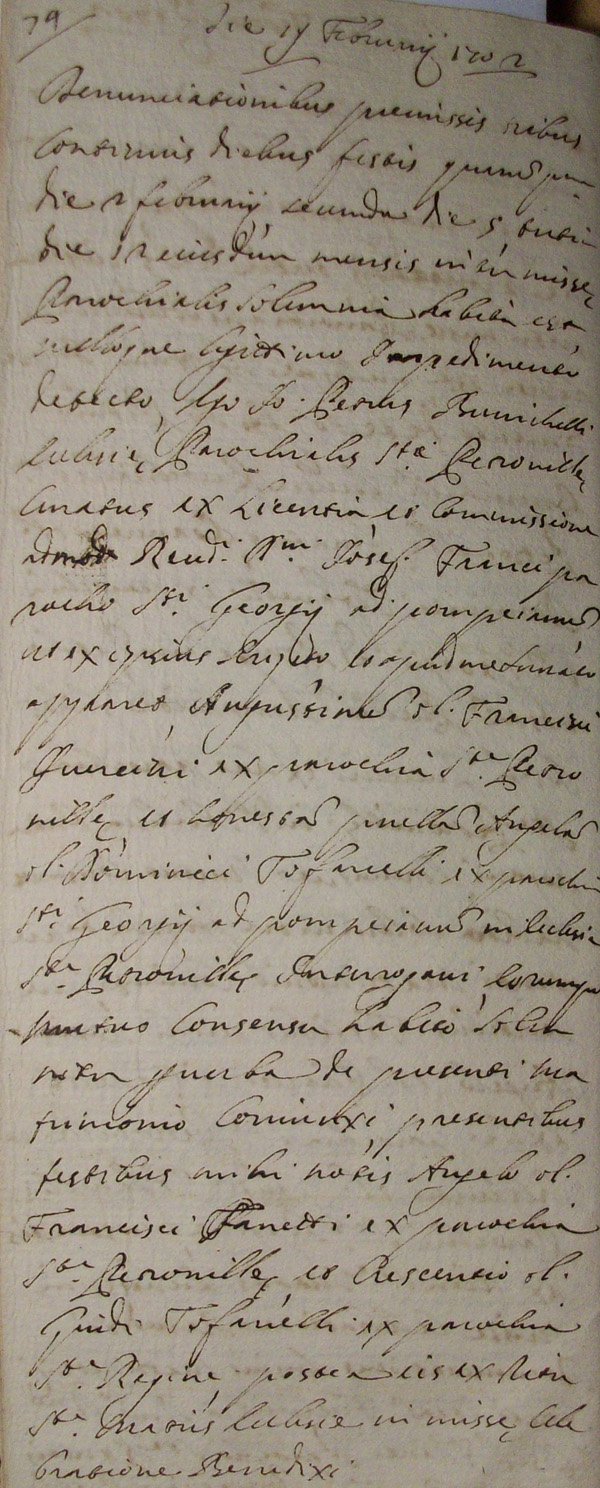 79
die 19 Februarij 1702
Denunciationibus premissis tribus
Continuis diebus festis quarum prima
die 2 februarij secunda die 5 tertia
die 12 eiusdem mensis inter misse
Parochialis solemnia habita est
nulloque legittimo Impedimento
detecto, Ego Jo. Petrus
Ecclesie Parochialis Ste Petronille
Curatus ex Licentia et Commissione
admod Rendi. Dmi Josef. Franci pa
rocho Sti. Georgij ad pompeianum
ut ex ipsius
apparet, Angustinum ol. Francisci
Guercini ex parochia Ste. Petro
nille et honestam puellam Angelam
ol. Dominici Tofanelli ex parochia
Sti. Georgij ad pompeianum in Ecclesia
Ste Petronille Interrogavi, eorumque
mutuo Consensu habito Solem
niter p verba de presenti ma
trimonio Coniunxi, presentibus
testibus mihi notis Angelo ol.
Francisci Fanetti ex parochia
Ste Petronille et Crescentio ol.
Guidi Tofanelli ex parochia
Ste. Regine, postea eis ex Ritu
Ste. Matris Ecclesie in misse Cele
bratione Benedixi